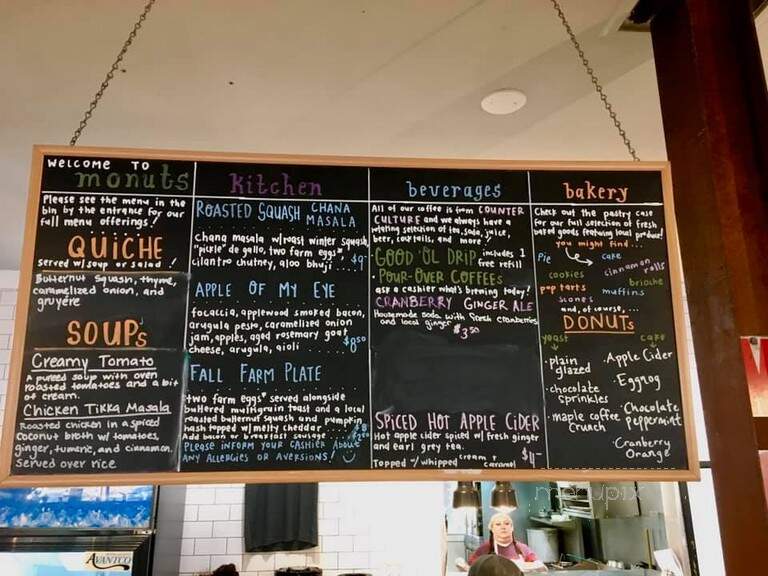 WELCOME TO
monuts
Please see the menu in the
bin by the entrance for our
full menu offerings!
QUICHE
served w/soup or salad!
Butternut squash, thyme,
caramelized onion, and
gruyére
SOUPs
Creamy Tomato
A pureed soup with oven
roasted tomatoes and a bit
of cream.
Chicken Tikka Masala
Roasted chicken in a spiced
coconut broth w/ tomatoes,
ginger, tumeric, and cinnamon.
Served over rice
kitchen
ROASTED SQUASH CHANA
MASALA
chana masala w/roast winter squash,
"pickle" de gallo, two farm eggs*
cilantro chutney, aloo bhuji .... $9
APPLE OF MY EYE
focaccia, applewood smoked bacon,
arugula pesto, caramelized onion
jam, apples, aged rosemary goat
cheese, arugula, aioli ..... $8.50
FALL FARM PLATE
two farm eggs* served alongside
buttered multigrain toast and a local
roasted butternut squash and pumpkin
hash topped w/melly cheddar .... $8
Add bacon or breakfast sausage ....
PLEASE INFORM YOUR CASHIER ABOUT
ANY ALLERGIES OR AVERSIONS!
beverages
All of our coffee is from COUNTER
CULTURE and we always have a
rotating selection of tea, soda, juice,
beer, cocktails, and more!
GOOD 'OL DRIP includes 1
free refill
POUR-OVER COFFEES
ask a cashier what's brewing today!
CRANBERRY GINGER ALE
Housemade soda with fresh cranberries
and local ginger $3.50
SPICED HOT APPLE CIDER
Hot apple cider spiced w/ fresh ginger
and earl grey tea.
Topped w/whipped cream + caramel $4
bakery
Check out the pastry case
for our full selection of fresh
baked goods featuring local produce!
you might find...
Pie cake
cookies cinnamon rolls
pop tarts brioche
scones muffins
and, of course, ...
DONUTs
yeast cake
•plain glazed
•chocolate sprinkles
•maple coffee crunch
•Apple Cider
•Eggnog
•Chocolate Peppermint
•Cranberry Orange
menupix
AVANTCO